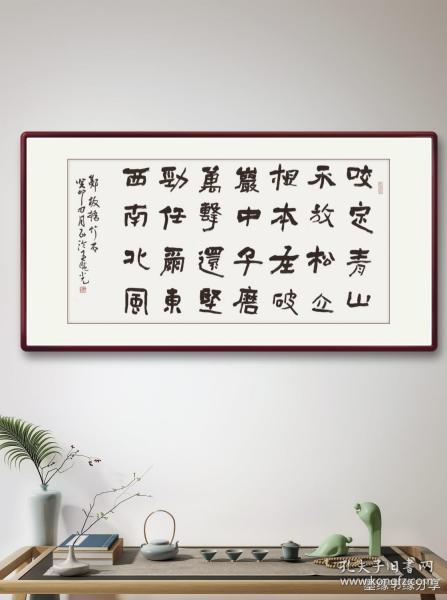 咬定青山
不放松立
根本在破
巖中千磨
萬擊還堅
勁任爾東
西南北風
鄭板橋竹石
癸卯四月
孔夫子旧书网
www.kongfz.com